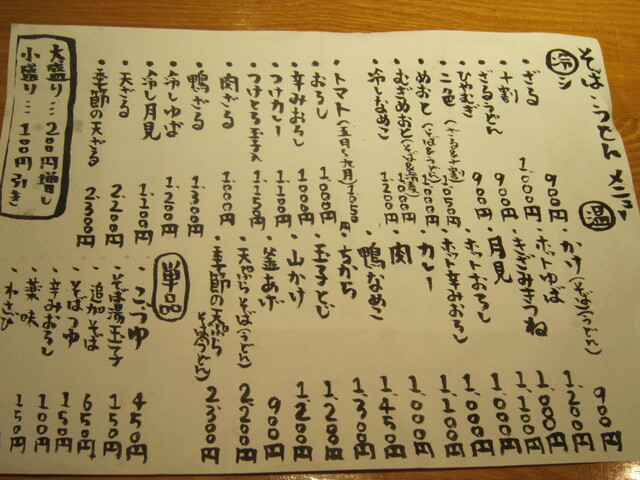 そば・うどん メニュー
冷
・ざる 900円
・十割 1.000円
・ざるうどん 900円
・ひやむぎ 900円
・二色(ざる&十割) 1050円
・めおと(そば&うどん) 1000円
・むぎめおと 1000円
・冷しなめこ 1200円
・トマト(五月〜九月) 1050円
・おろし 1.000円
・辛みおろし 1.000円
・つけカレー 1.100円
・つけとろ玉子入 1.150円
・肉ざる 1.000円
・鴨ざる 1.300円
・冷しゆば 1.200円
・冷し月見 1.100円
・天ざる 2.200円
・季節の天ざる 2.300円
大盛り…200円増し
小盛り…100円引き
温
・かけ(そば/うどん) 900円
・ホットゆば 1.200円
・きざみきつね 1.000円
・月見 1.100円
・ホットおろし 1.000円
・ホット辛みおろし 1.000円
・カレー 1.100円
・肉 1.000円
・鴨なめこ 1.450円
・ちから 1.300円
・玉子とじ 1.200円
・山かけ 1.200円
・釜あげ 900円
・天ぷらそば(うどん) 2.200円
・季節の天ぷらそば(うどん) 2.300円
単品
・ごつゆ 450円
・そば湯玉子 150円
・追加そば 650円
・そばつゆ 150円
・辛みおろし 150円
・薬味 100円
・わさび 150円